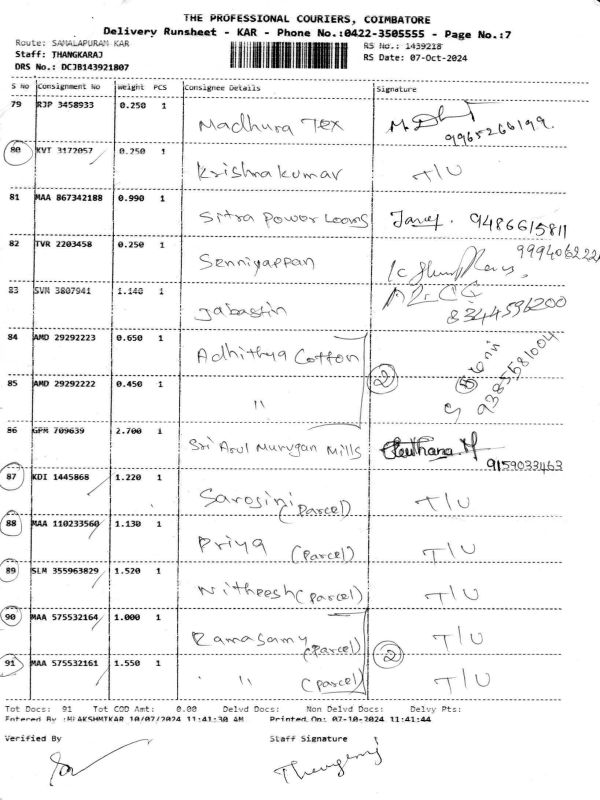 THE PROFESSIONAL COURIERS, COIMBATORE
Delivery Runsheet - KAR - Phone No.:0422-3505555 - Page No.:7
Route: SAMALAPURAM KAR
Staff: THANGKARAJ
DRS No.: DCJB143921807
RS No.: 1439218
RS Date: 07-Oct-2024
S No Consignment No Weight PCS Consignee Details Signature
79 RJP 3458933 0.250 1 Madhura Tex
9965266199.
80 KVT 3172057 0.250 1 Krishnakumar T/U
81 MAA 867342188 0.990 1 Sitra Power Looms 9486615811
82 TVR 2203458 0.250 1 Senniyappan
83 SVM 3807941 1.140 1 Jabastin 8344596200
84 AMD 29292223 0.650 1 Adhithya Cotton
85 AMD 29292222 0.450 1 " 2 9385581004
86 GPM 709639 2.700 1 Sri Arul Murugan Mills
9159033463
87 KDI 1445868 1.220 1 Sarosini (Parcel) T/U
88 MAA 110233560 1.130 1 Priya (Parcel) T/U
89 SLM 355963829 1.520 1 Nitheesh (Parcel) T/U
90 MAA 575532164 1.000 1 Ramasamy (Parcel) T/U
91 MAA 575532161 1.550 1 " (Parcel) 2 T/U
Tot Docs: 91 Tot COD Amt: 0.00 Delvd Docs: Non Delvd Docs: Delvy Pts:
Entered By :MLAKSHMIKAR 10/07/2024 11:41:30 AM Printed On: 07-10-2024 11:41:44
Verified By Staff Signature